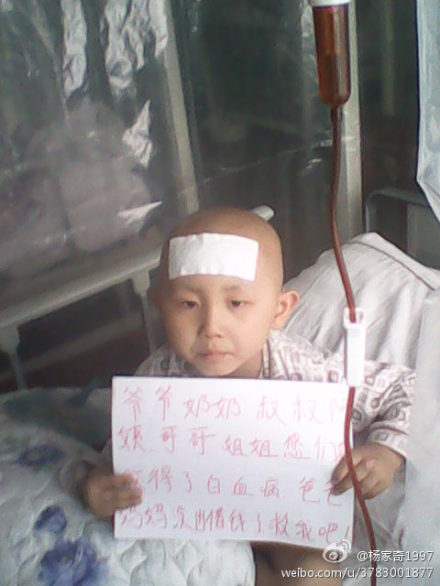 爷爷奶奶叔叔阿
姨哥哥姐姐您们
得了白血病爸爸
妈妈没借钱了救我吧!
@杨家奇1997
weibo.com/u/3783001877